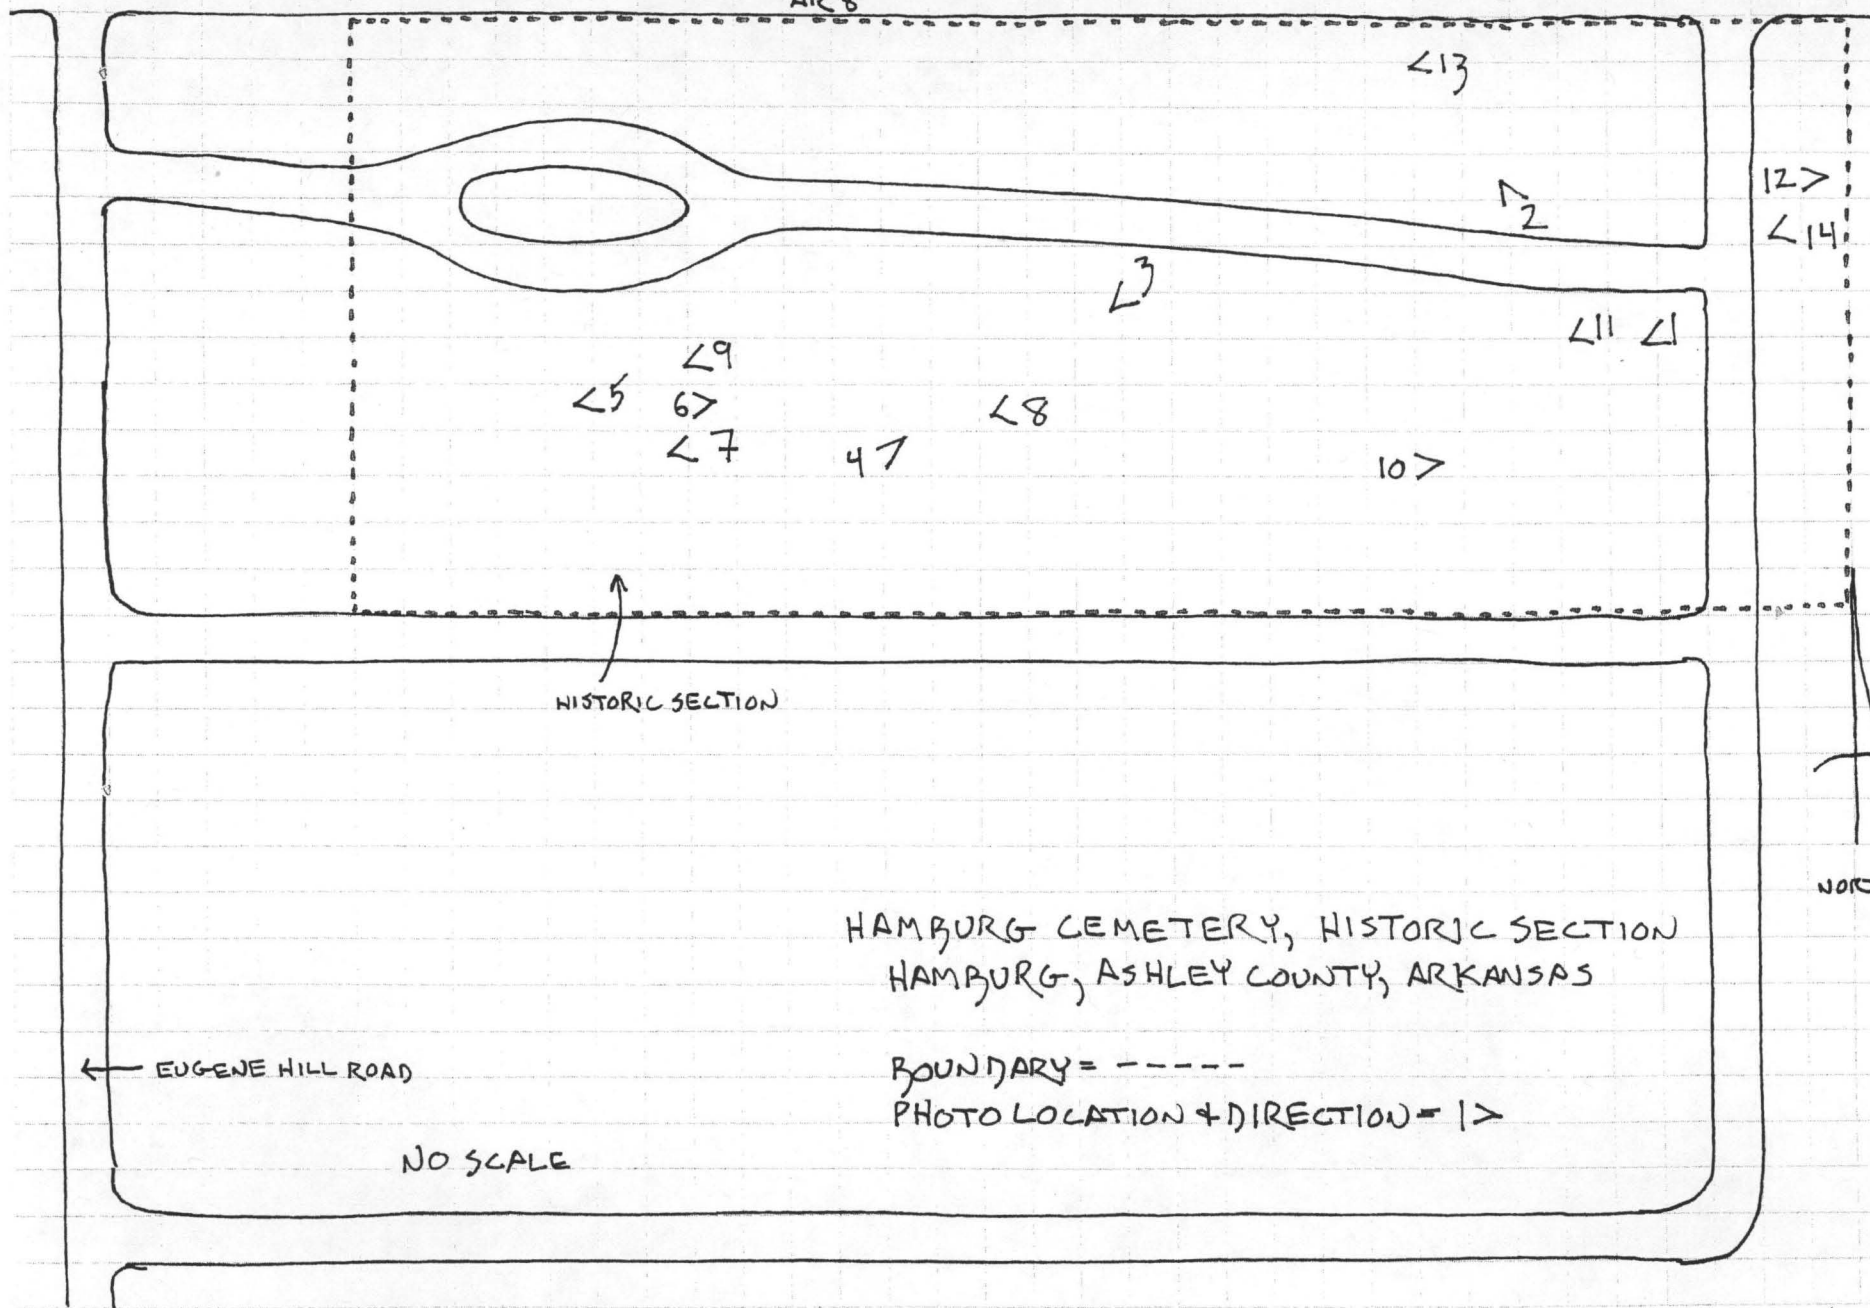 AR 8
<13
12>
2
<14
3
<11 <1
<9
<5 6> <8
<7 4 10>
HISTORIC SECTION
NORT
HAMBURG CEMETERY, HISTORIC SECTION
HAMBURG, ASHLEY COUNTY, ARKANSAS
← EUGENE HILL ROAD
BOUNDARY = -----
PHOTO LOCATION & DIRECTION = 1>
NO SCALE